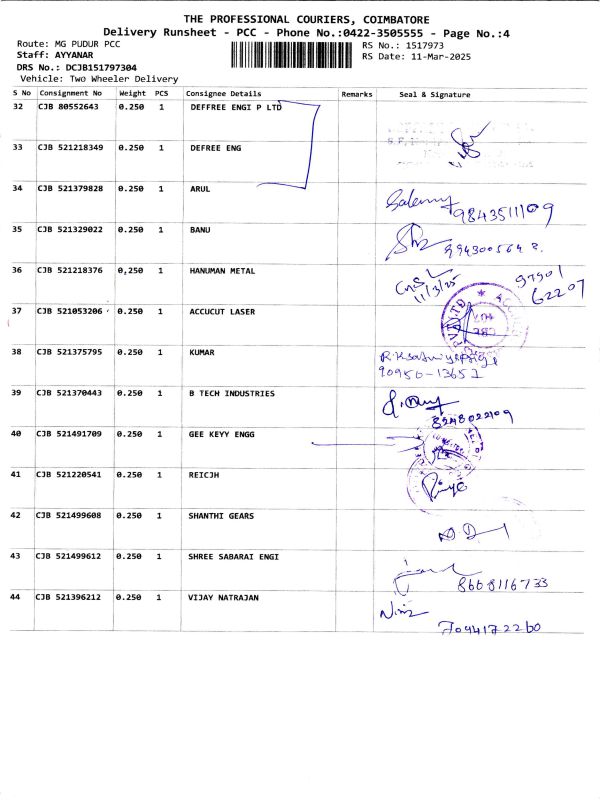 THE PROFESSIONAL COURIERS, COIMBATORE
Delivery Runsheet - PCC - Phone No.:0422-3505555 - Page No.:4
Route: MG PUDUR PCC
RS No.: 1517973
Staff: AYYANAR
RS Date: 11-Mar-2025
DRS No.: DCJB151797304
Vehicle: Two Wheeler Delivery
S No Consignment No Weight PCS Consignee Details Remarks Seal & Signature
32 CJB 80552643 0.250 1 DEFFREE ENGI P LTD
33 CJB 521218349 0.250 1 DEFREE ENG
34 CJB 521379828 0.250 1 ARUL
9843511109
35 CJB 521329022 0.250 1 BANU
36 CJB 521218376 0,250 1 HANUMAN METAL
11/3/25
97901
62207
37 CJB 521053206 0.250 1 ACCUCUT LASER
38 CJB 521375795 0.250 1 KUMAR
90950-13651
39 CJB 521370443 0.250 1 B TECH INDUSTRIES
8248022109
40 CJB 521491709 0.250 1 GEE KEYY ENGG
41 CJB 521220541 0.250 1 REICJH
42 CJB 521499608 0.250 1 SHANTHI GEARS
43 CJB 521499612 0.250 1 SHREE SABARAI ENGI
8608116733
44 CJB 521396212 0.250 1 VIJAY NATRAJAN
7094172260